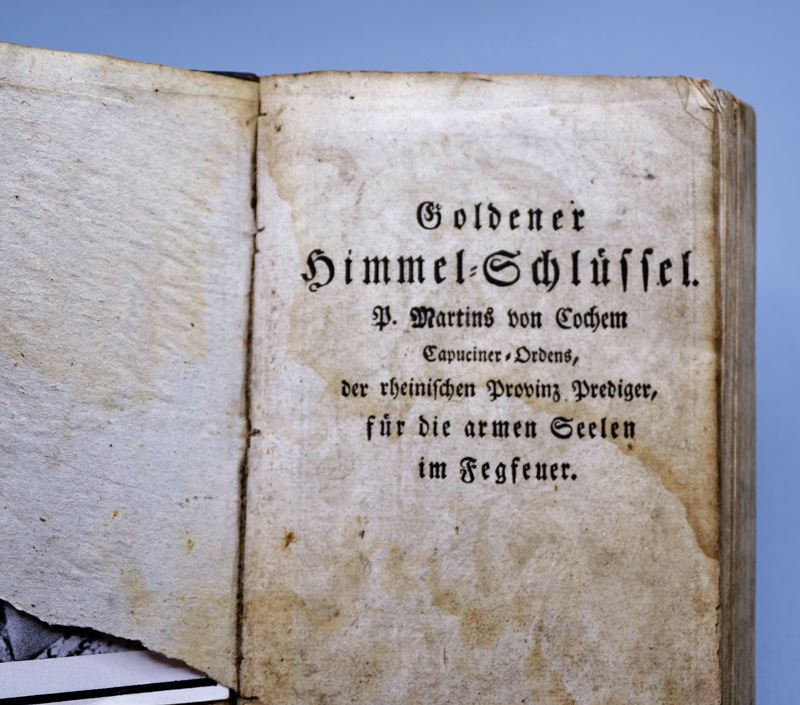 Goldener
Himmel-Schlüſſel.
P. Martins von Cochem
Capuciner-Ordens,
der rheiniſchen Provinz Prediger,
für die armen Seelen
im Fegfeuer.